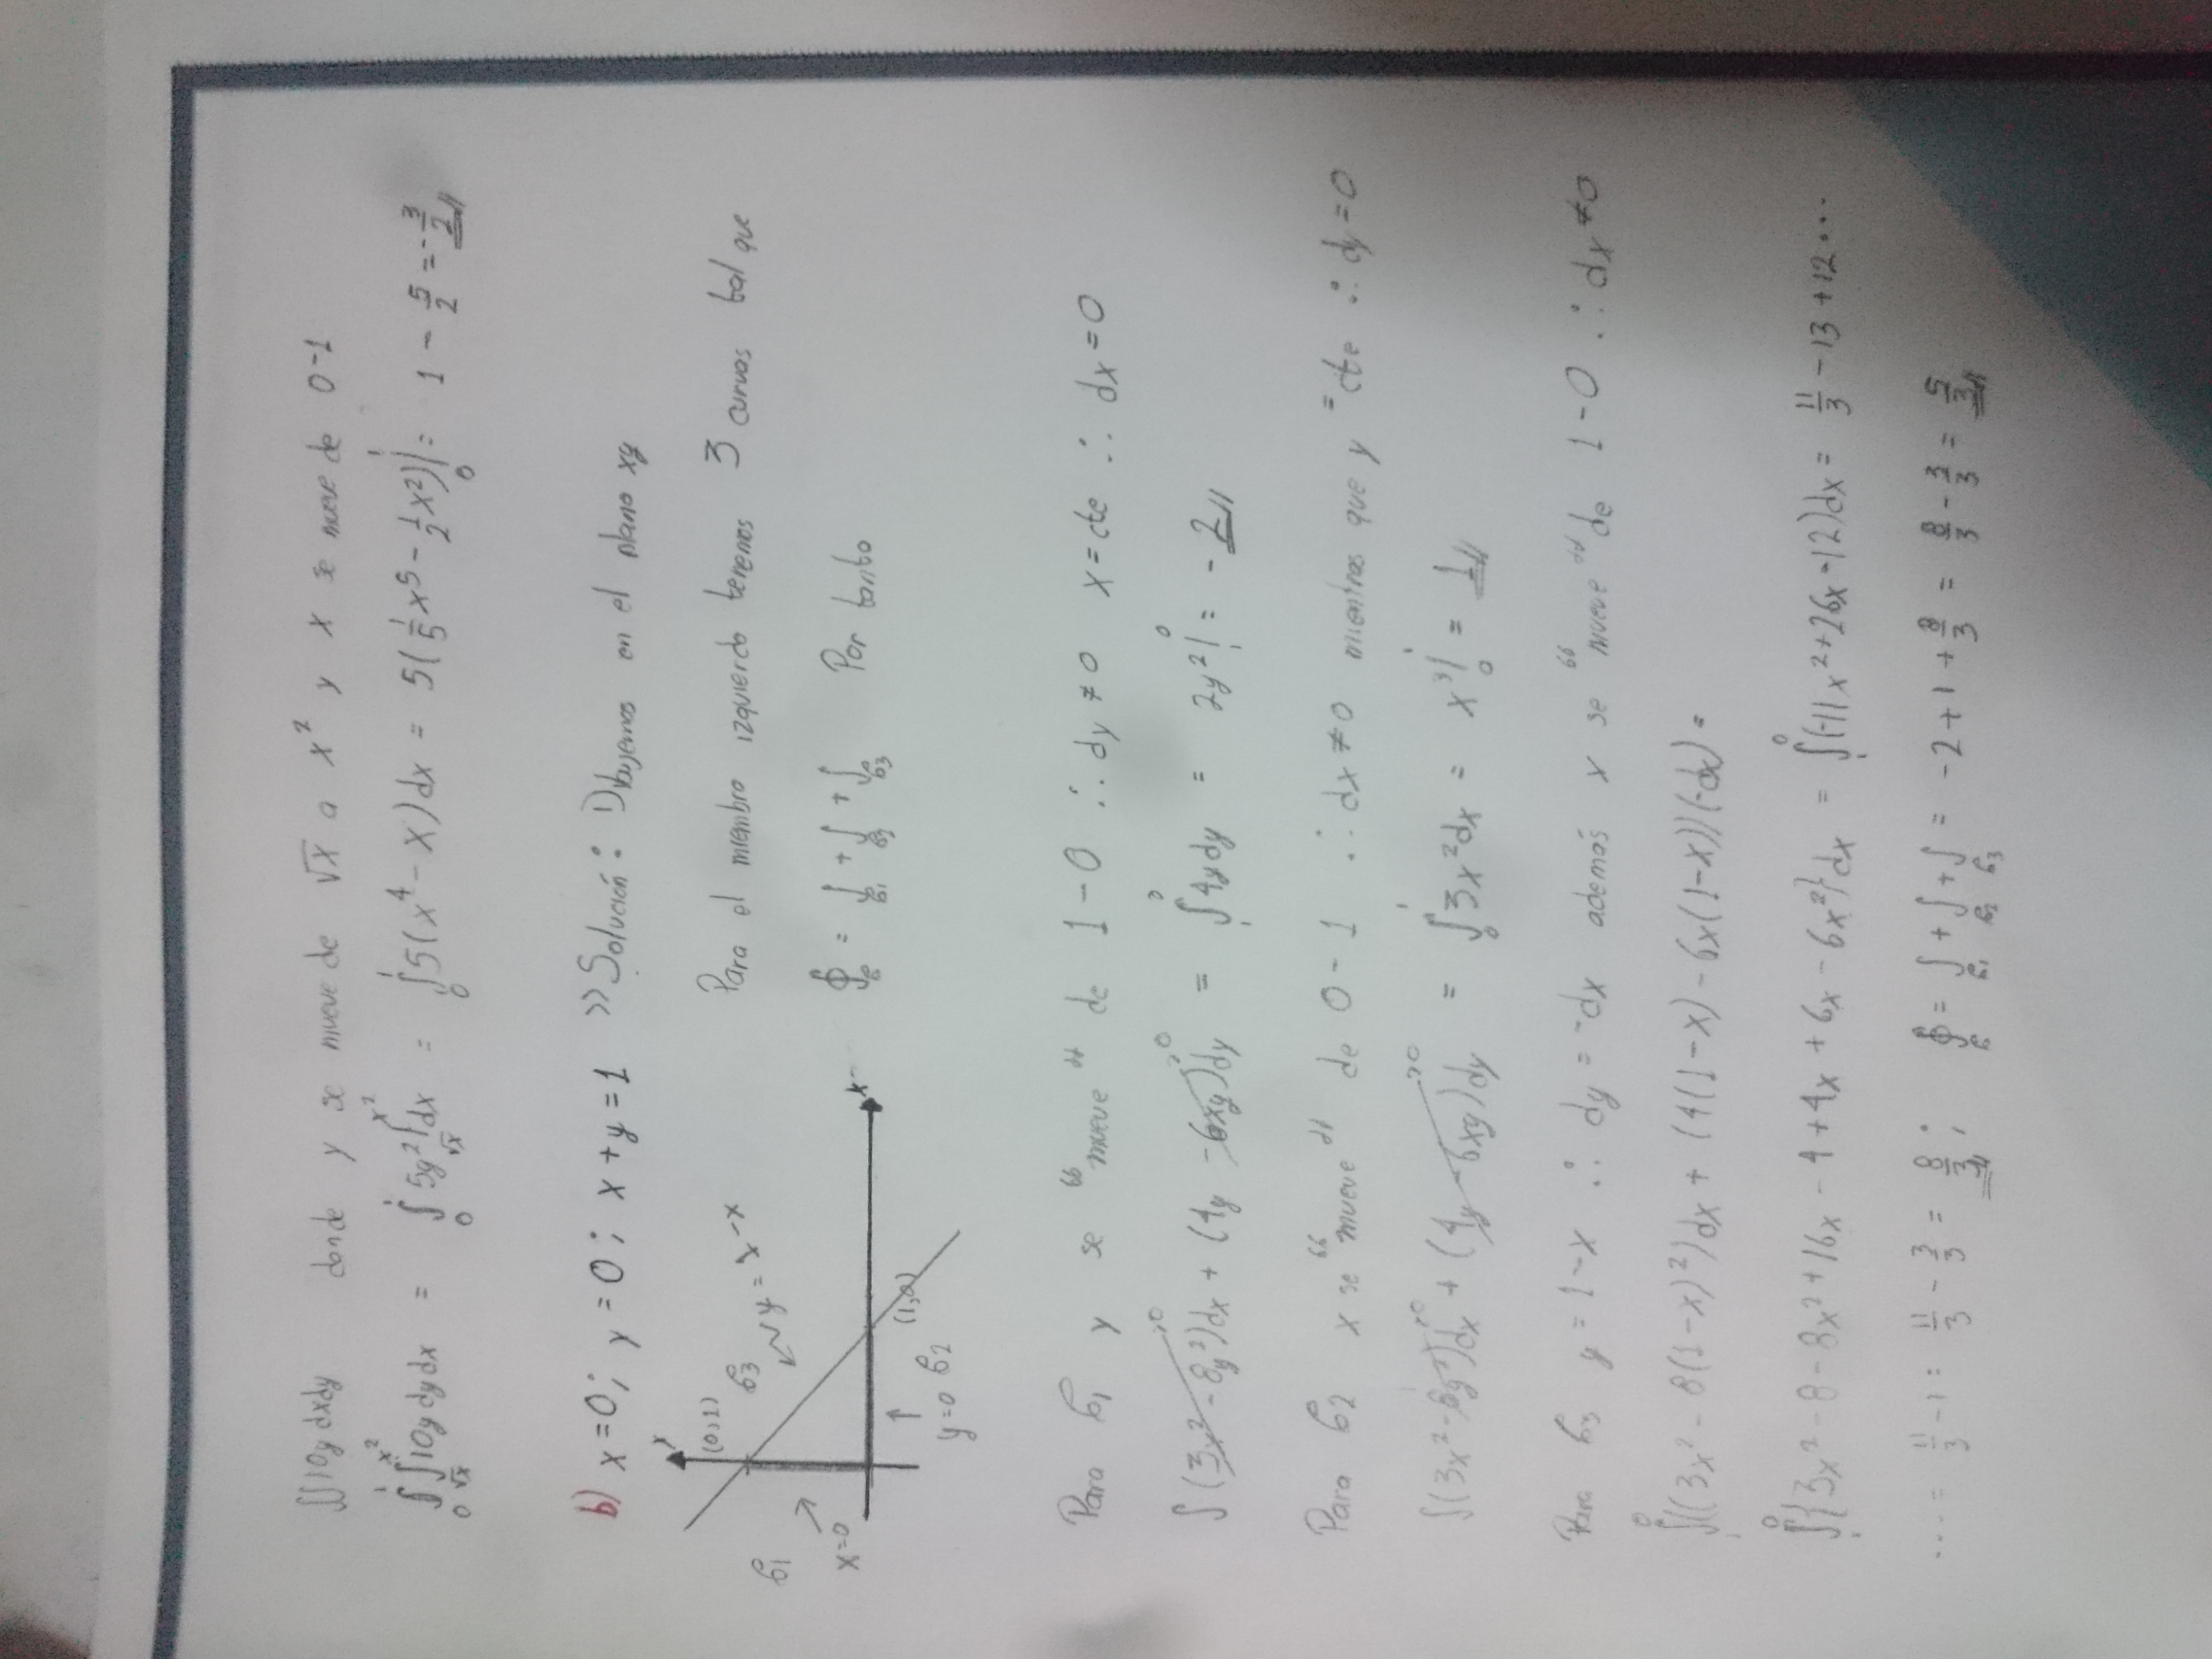 ∫∫10y dxdy donde y se mueve de √x a x² y x se mueve de 0-1
∫₀¹∫_√x^x² 10y dydx = ∫₀¹ 5y²|_√x^x² dx = ∫₀¹ 5(x⁴ - x)dx = 5(1/5 x⁵ - 1/2 x²)|₀¹ = 1 - 5/2 = -3/2
b) x=0; y=0; x+y=1 >> Solución: Dibujemos en el plano xy
y
(0,1)
C1
x=0
C3
y = 1-x
y=0 C2
(1,0)
x
Para el miembro izquierdo tenemos 3 curvas tal que
∮_C = ∫_C1 + ∫_C2 + ∫_C3 Por tanto
Para C1 y se "mueve" de 1-0 ∴ dy≠0 x=cte ∴ dx=0
∫(3x² - 8y²)dx + (4y - 6xy)dy = ∫₁⁰ 4ydy = 2y²|₁⁰ = -2
Para C2 x se "mueve" de 0-1 ∴ dx≠0 mientras que y=cte ∴ dy=0
∫(3x² - 8y²)dx + (4y - 6xy)dy = ∫₀¹ 3x²dx = x³|₀¹ = 1
Para C3 y=1-x ∴ dy=-dx además x se "mueve" de 1-0 ∴ dx≠0
∫₁⁰(3x² - 8(1-x)²)dx + (4(1-x) - 6x(1-x))(-dx) =
∫₁⁰{3x² - 8 - 8x² + 16x - 4 + 4x + 6x - 6x²}dx = ∫₁⁰(-11x² + 26x - 12)dx = 11/3 - 13 + 12...
... = 11/3 - 1 = 11/3 - 3/3 = 8/3; ∮_C = ∫_C1 + ∫_C2 + ∫_C3 = -2 + 1 + 8/3 = 8/3 - 3/3 = 5/3